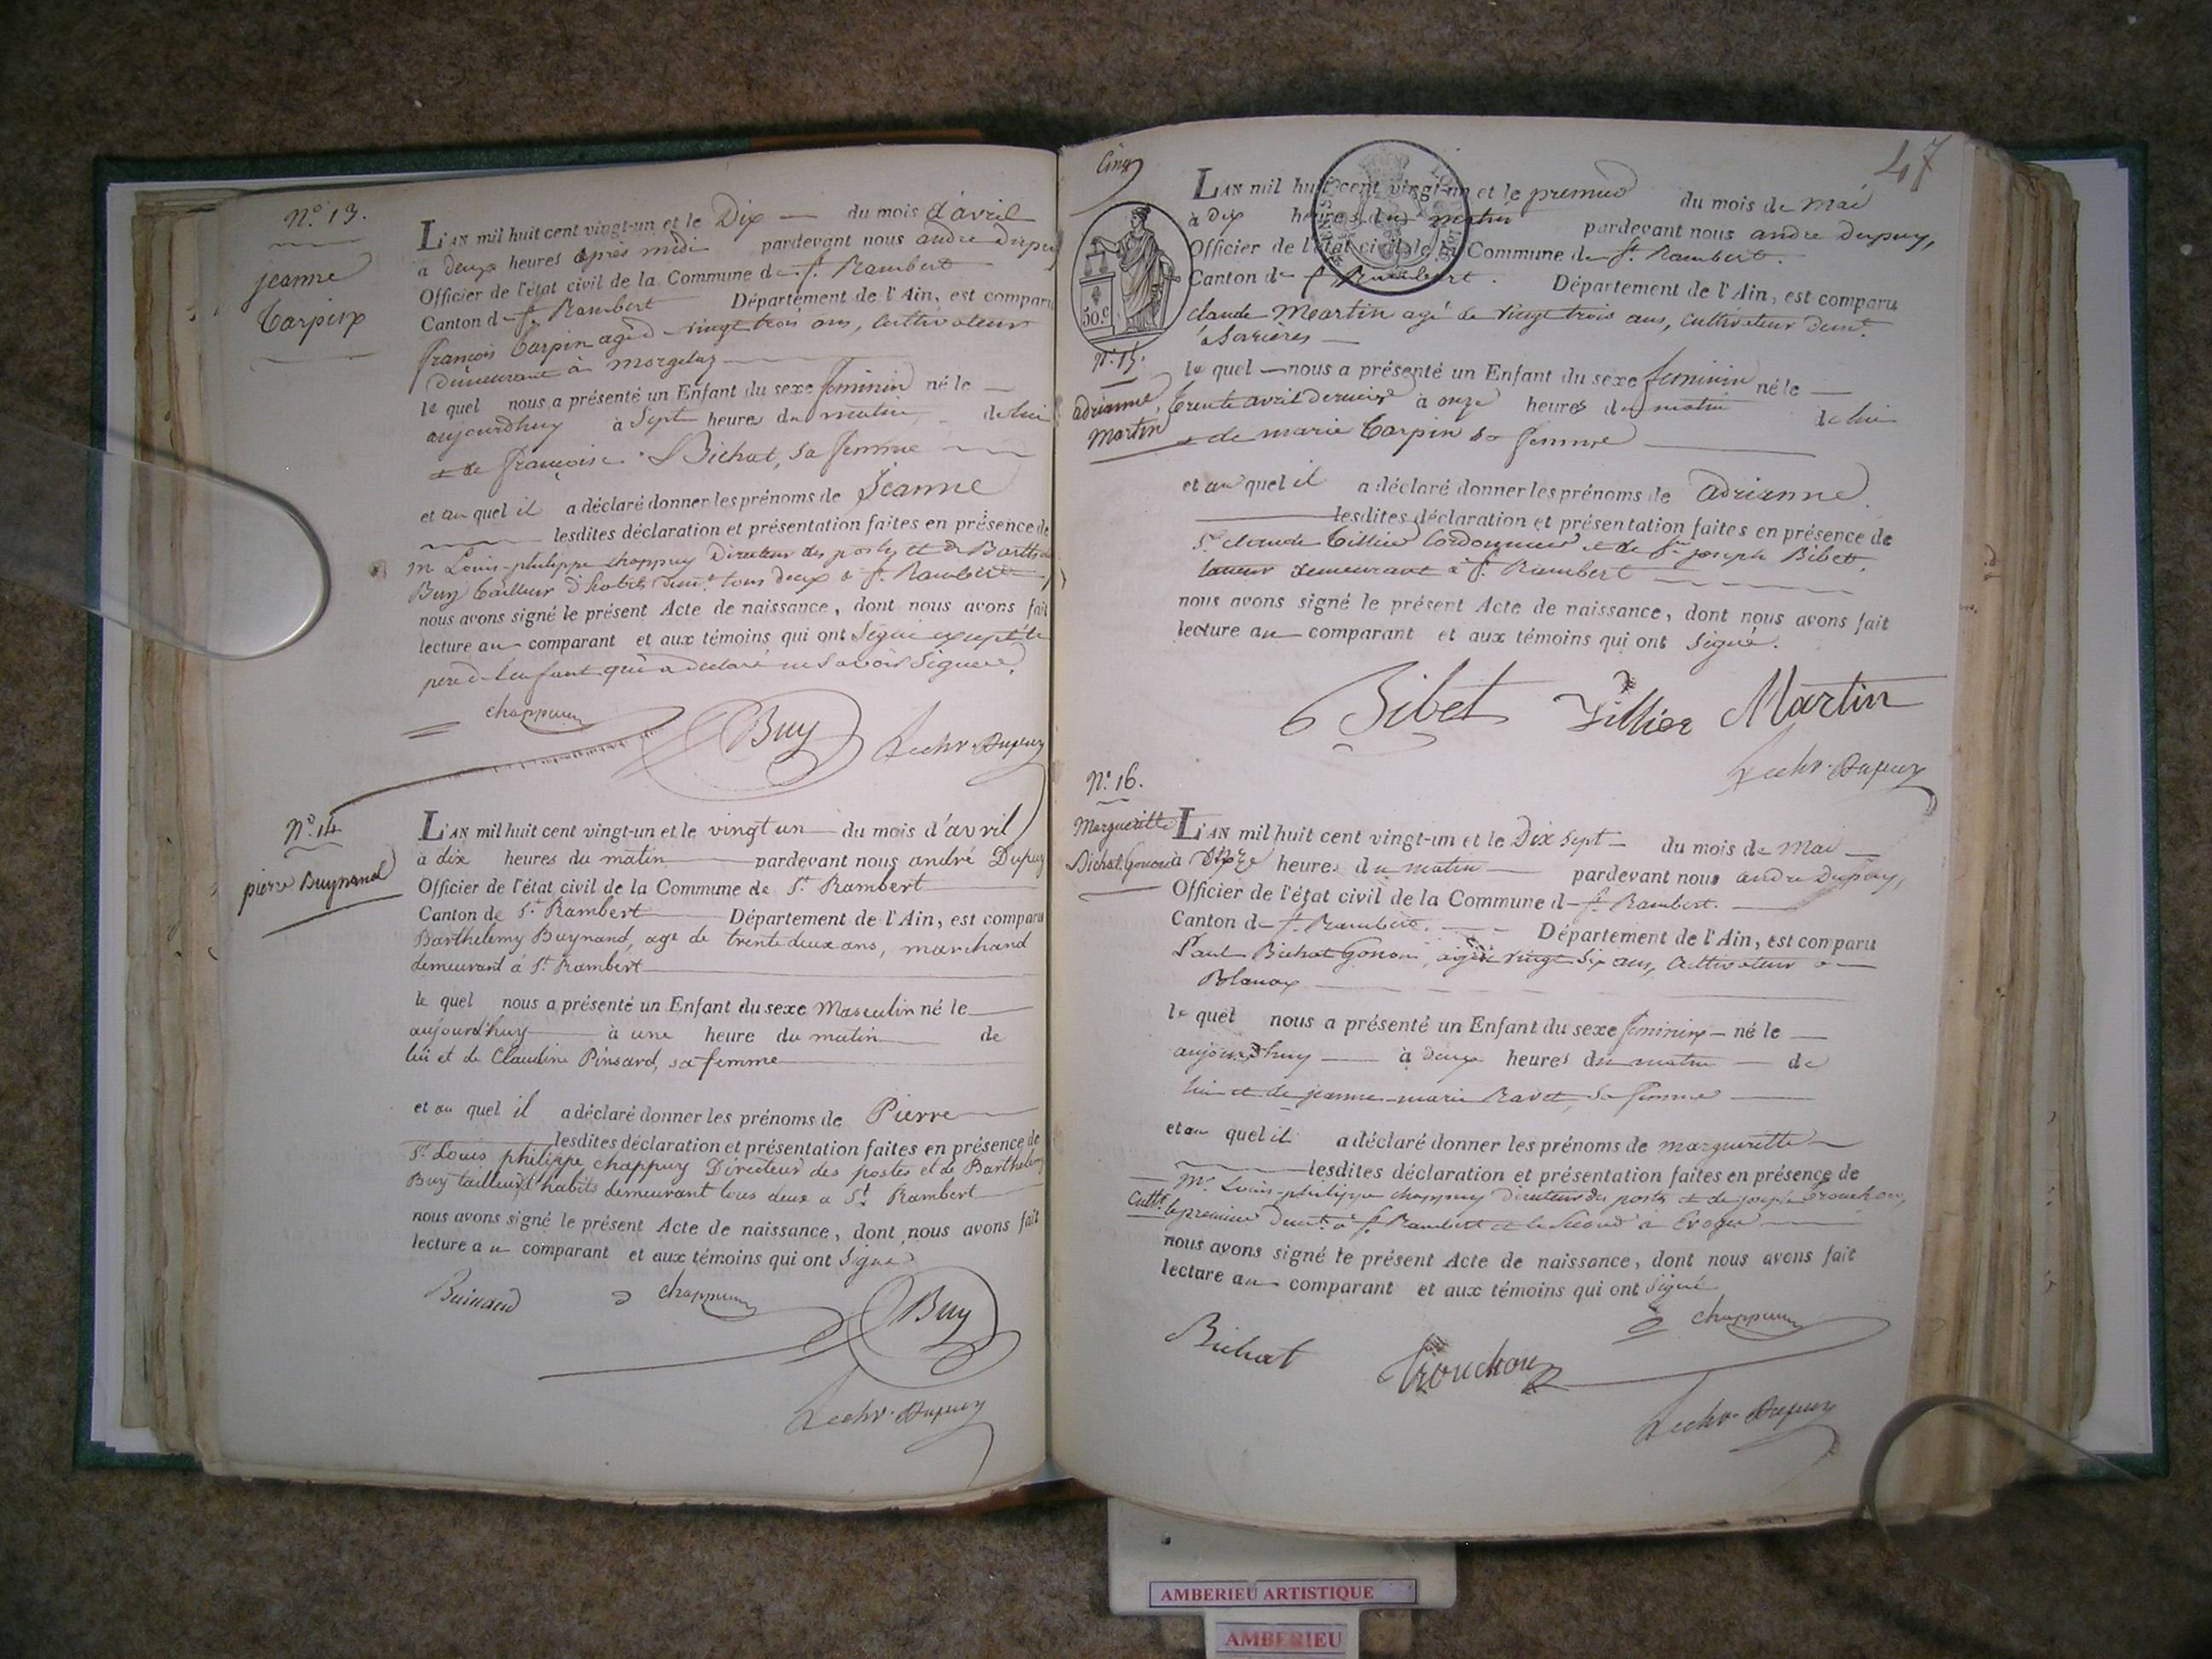 N.º 13.
jeanne
Carpin
L'AN mil huit cent vingt-un et le Dix du mois d'avril
à deux heures après midi pardevant nous andre dupuy
Officier de l'état civil de la Commune de St. Rambert
Canton de St. Rambert Département de l'Ain, est comparu
françois Carpin agé de vingt trois ans, Cultivateur
demeurant à morgelaz
le quel nous a présenté un Enfant du sexe feminin né le
aujourdhuy à Sept heures du matin de lui
et de françoise Bichat, sa femme
et au quel il a déclaré donner les prénoms de Jeanne
lesdites déclaration et présentation faites en présence de
mr Louis-philippe chappuy Directeur des postes et de Barthelemy
Buy tailleur d'habits demt. tous deux à St. Rambert
nous avons signé le présent Acte de naissance, dont nous avons fait
lecture au comparant et aux témoins qui ont Signé excepté le
pere de l'enfant qui a declaré ne Savoir Signer.
chappuy Buy Dupuy
N.º 14
pierre Buynand
L'AN mil huit cent vingt-un et le vingt un du mois d'avril
à dix heures du matin pardevant nous andré Dupuy
Officier de l'état civil de la Commune de St. Rambert
Canton de St. Rambert Département de l'Ain, est comparu
Barthelemy Buynand, age de trente deux ans, marchand
demeurant à St. Rambert
le quel nous a présenté un Enfant du sexe Masculin né le
aujourd'huy à une heure du matin de
lui et de Claudine Pinsard, sa femme
et au quel il a déclaré donner les prénoms de Pierre
lesdites déclaration et présentation faites en présence de
Sr. Louis philippe chappuy Directeur des postes et de Barthelemy
Buy tailleur d'habits demeurant tous deux a St. Rambert
nous avons signé le présent Acte de naissance, dont nous avons fait
lecture au comparant et aux témoins qui ont Signé
Buinand chappuy Buy
Dupuy
Cinq
47
50.c
N.º 15.
adrianne
Martin
L'AN mil huit cent vingt-un et le premier du mois de Mai
à dix heures du matin pardevant nous andre dupuy,
Officier de l'état civil de la Commune de St. Rambert.
Canton de St. Rambert. Département de l'Ain, est comparu
claude Martin agé de vingt trois ans, Cultivateur demt.
à Serrières
le quel nous a présenté un Enfant du sexe feminin né le
trente avril dernier à onze heures du matin de lui
et de marie Carpin sa femme
et au quel il a déclaré donner les prénoms de adrianne
lesdites déclaration et présentation faites en présence de
Sr. claude Tillier Cordonnier et de Sr. joseph Bibet,
demeurant à St. Rambert
nous avons signé le présent Acte de naissance, dont nous avons fait
lecture au comparant et aux témoins qui ont signé.
Bibet Tillier Martin
Dupuy
N.º 16.
Margueritte
Bichat Gonon
L'AN mil huit cent vingt-un et le Dix sept du mois de Mai
à heures du matin pardevant nous andre dupuy,
Officier de l'état civil de la Commune de St. Rambert.
Canton de St. Rambert. Département de l'Ain, est comparu
Paul Bichat Gonon, agé de vingt Six ans, Cultivateur a
Blanaz
le quel nous a présenté un Enfant du sexe feminin né le
aujourdhuy à deux heures du matin de
lui et de jeanne-marie Ravet, Sa femme
et au quel il a déclaré donner les prénoms de margueritte
lesdites déclaration et présentation faites en présence de
Mr. Louis-philippe chappuy directeur des postes et de joseph Trouchon,
Cultr. le premier demt. à St. Rambert et le Second à Evoges
nous avons signé le présent Acte de naissance, dont nous avons fait
lecture au comparant et aux témoins qui ont Signé
chappuy
Bichat Trouchon
Dupuy
AMBERIEU ARTISTIQUE
AMBERIEU